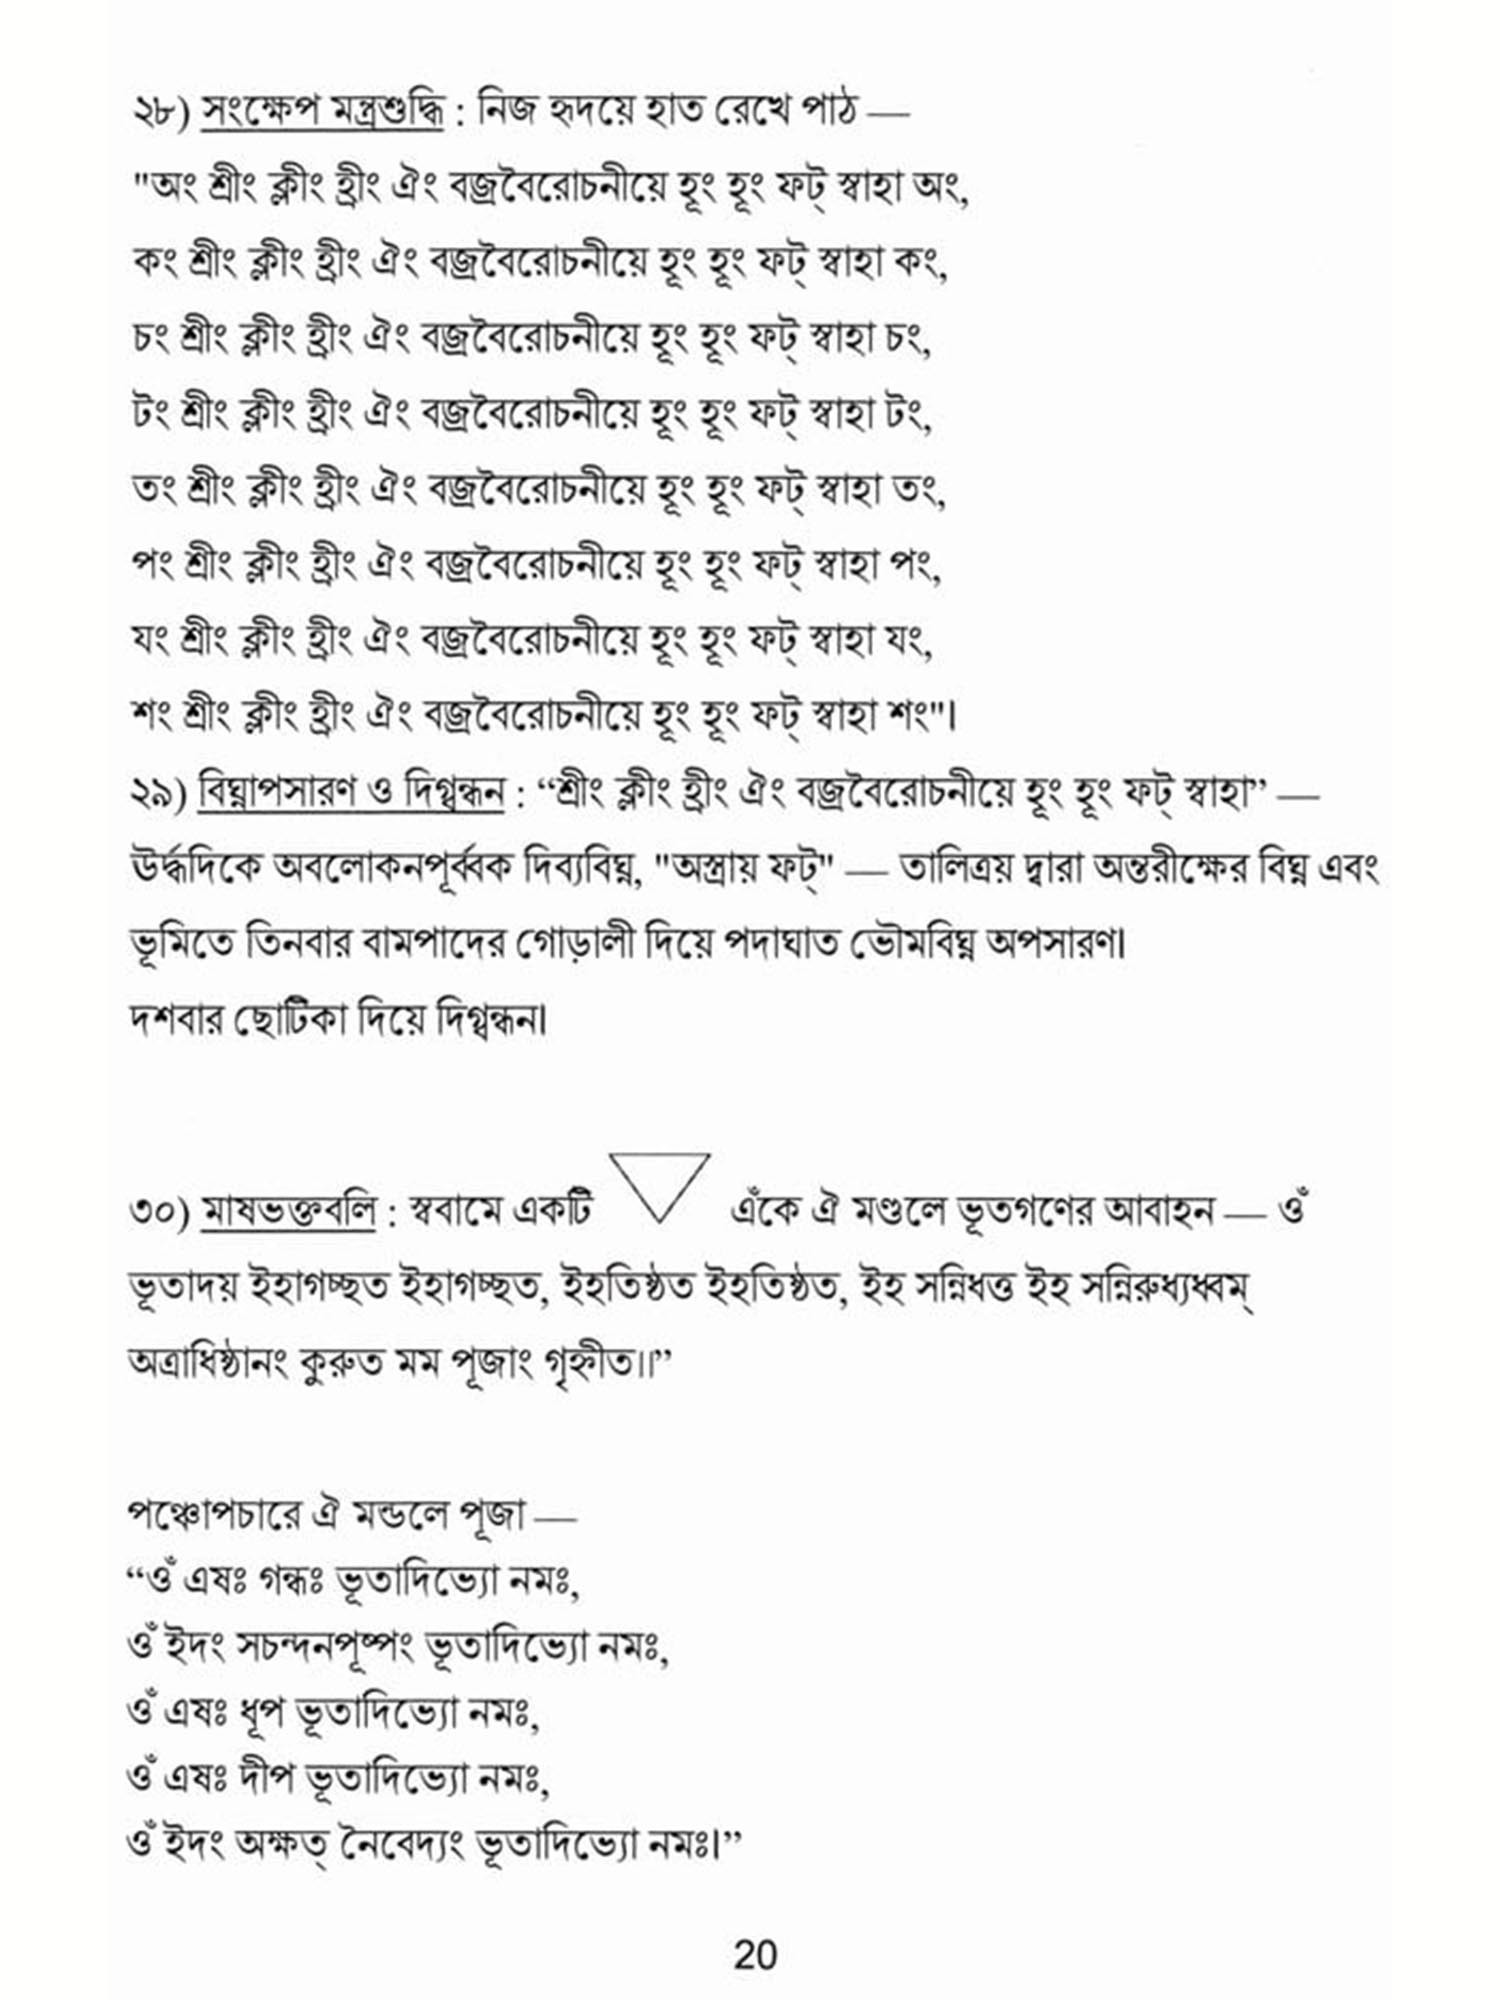 ২৮) সংক্ষেপ মন্ত্রশুদ্ধি : নিজ হৃদয়ে হাত রেখে পাঠ —
"অং শ্রীং ক্লীং হ্রীং ঐং বজ্রবৈরোচনীয়ে হূং হূং ফট্ স্বাহা অং,
কং শ্রীং ক্লীং হ্রীং ঐং বজ্রবৈরোচনীয়ে হূং হূং ফট্ স্বাহা কং,
চং শ্রীং ক্লীং হ্রীং ঐং বজ্রবৈরোচনীয়ে হূং হূং ফট্ স্বাহা চং,
টং শ্রীং ক্লীং হ্রীং ঐং বজ্রবৈরোচনীয়ে হূং হূং ফট্ স্বাহা টং,
তং শ্রীং ক্লীং হ্রীং ঐং বজ্রবৈরোচনীয়ে হূং হূং ফট্ স্বাহা তং,
পং শ্রীং ক্লীং হ্রীং ঐং বজ্রবৈরোচনীয়ে হূং হূং ফট্ স্বাহা পং,
যং শ্রীং ক্লীং হ্রীং ঐং বজ্রবৈরোচনীয়ে হূং হূং ফট্ স্বাহা যং,
শং শ্রীং ক্লীং হ্রীং ঐং বজ্রবৈরোচনীয়ে হূং হূং ফট্ স্বাহা শং"।
২৯) বিঘ্নাপসারণ ও দিগ্বন্ধন : “শ্রীং ক্লীং হ্রীং ঐং বজ্রবৈরোচনীয়ে হূং হূং ফট্ স্বাহা” —
ঊর্দ্ধদিকে অবলোকনপূর্ব্বক দিব্যবিঘ্ন, "অস্ত্রায় ফট্" — তালিত্রয় দ্বারা অন্তরীক্ষের বিঘ্ন এবং
ভূমিতে তিনবার বামপাদের গোড়ালী দিয়ে পদাঘাত ভৌমবিঘ্ন অপসারণ।
দশবার ছোটিকা দিয়ে দিগ্বন্ধন।
৩০) মাষভক্তবলি : স্ববামে একটি এঁকে ঐ মণ্ডলে ভূতগণের আবাহন — ওঁ
ভূতাদয় ইহাগচ্ছত ইহাগচ্ছত, ইহতিষ্ঠত ইহতিষ্ঠত, ইহ সন্নিধত্ত ইহ সন্নিরুধ্যধ্বম্
অত্রাধিষ্ঠানং কুরুত মম পূজাং গৃহ্নীত।।”
পঞ্চোপচারে ঐ মন্ডলে পূজা —
“ওঁ এষঃ গন্ধঃ ভূতাদিভ্যো নমঃ,
ওঁ ইদং সচন্দনপূষ্পং ভূতাদিভ্যো নমঃ,
ওঁ এষঃ ধূপ ভূতাদিভ্যো নমঃ,
ওঁ এষঃ দীপ ভূতাদিভ্যো নমঃ,
ওঁ ইদং অক্ষত্ নৈবেদ্যং ভূতাদিভ্যো নমঃ।”
20